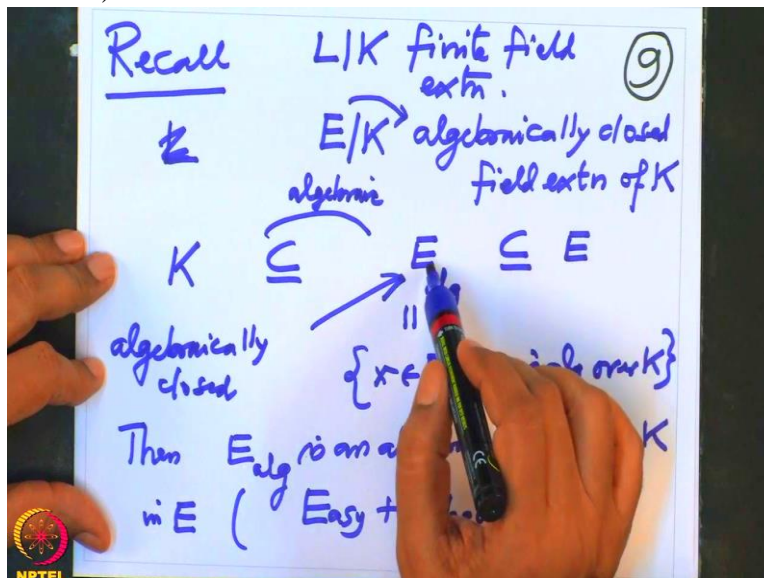 Recall L|K finite field ⑨
extn.
E|K algebraically closed
field extn of K
algebraic
K ⊆ E ⊆ E
||
algebraically
closed
{x ∈ over K}
Then E_alg is an K
in E ( Easy
NPTEL